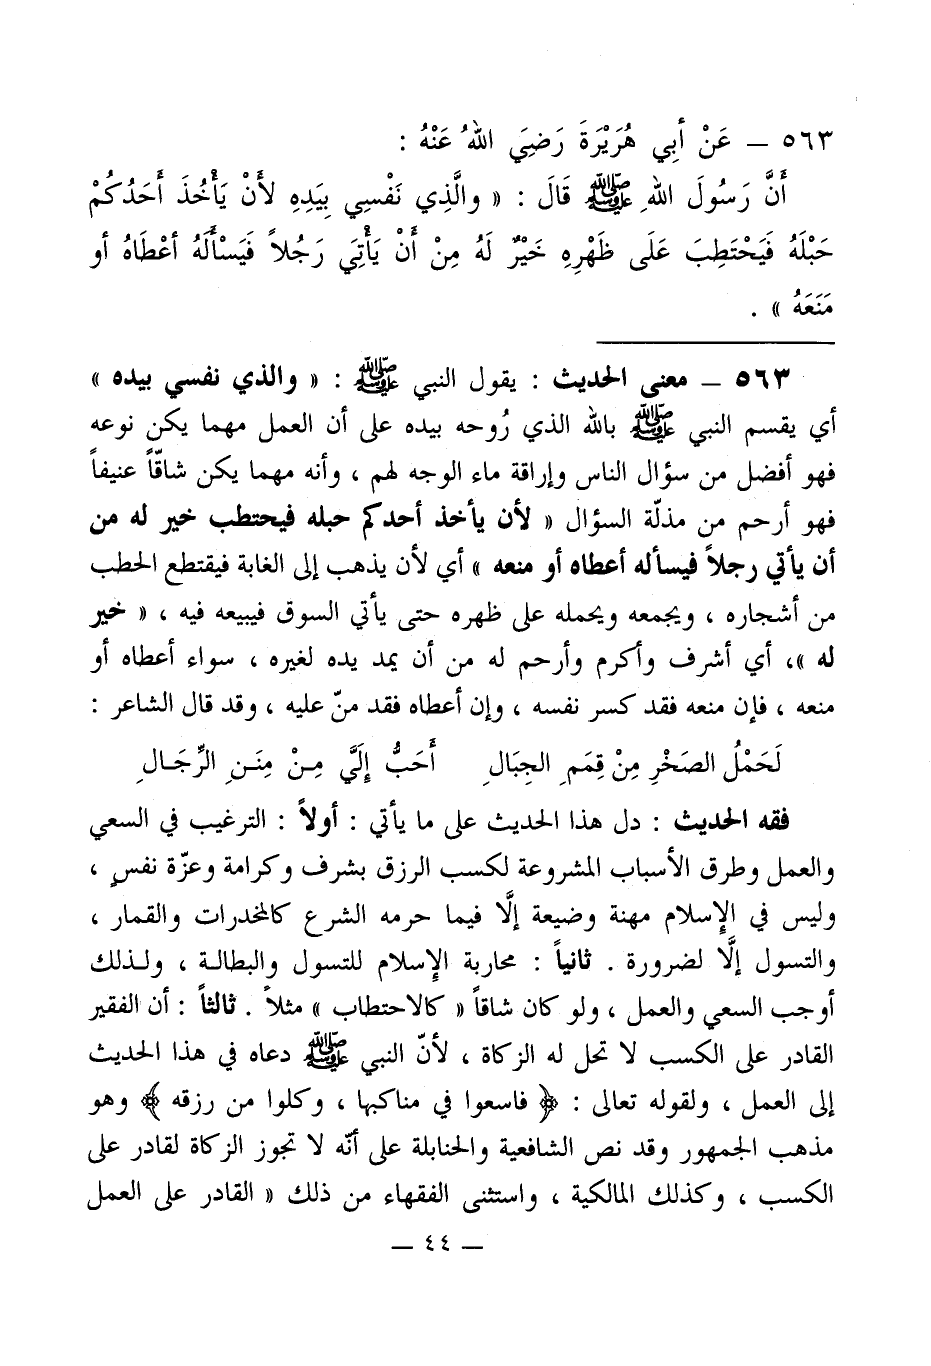 ٥٦٣ – عَنْ أَبِي هُرَيْرَةَ رَضِيَ اللهُ عَنْهُ :
أَنَّ رَسُولَ اللهِ ﷺ قَالَ : « والَّذِي نَفْسِي بِيَدِهِ لأَنْ يَأْخُذَ أَحَدُكُمْ
حَبْلَهُ فَيَحْتَطِبَ عَلَى ظَهْرِهِ خَيْرٌ لَهُ مِنْ أَنْ يَأْتِيَ رَجُلاً فَيَسْأَلَهُ أعْطَاهُ أو
مَنَعَهُ » .
٥٦٣ – معنى الحديث : يقول النبي ﷺ : « والذي نفسي بيده »
أي يقسم النبي ﷺ بالله الذي رُوحه بيده على أن العمل مهما يكن نوعه
فهو أفضل من سؤال الناس وإراقة ماء الوجه لهم ، وأنه مهما يكن شاقّاً عنيفاً
فهو أرحم من مذلّة السؤال « لأن يأخذ أحدكم حبله فيحتطب خير له من
أن يأتي رجلاً فيسأله أعطاه أو منعه » أي لأن يذهب إلى الغابة فيقتطع الحطب
من أشجاره ، ويجمعه ويحمله على ظهره حتى يأتي السوق فيبيعه فيه ، « خير
له »، أي أشرف وأكرم وأرحم له من أن يمد يده لغيره ، سواء أعطاه أو
منعه ، فإن منعه فقد كسر نفسه ، وإن أعطاه فقد منّ عليه ، وقد قال الشاعر :
لَحَمْلُ الصَخْرِ مِنْ قِمَمِ الجِبَالِ أَحَبُّ إِلَيَّ مِنْ مِنَنِ الرِّجَالِ
فقه الحديث : دل هذا الحديث على ما يأتي : أولاً : الترغيب في السعي
والعمل وطرق الأسباب المشروعة لكسب الرزق بشرف وكرامة وعزّة نفسٍ ،
وليس في الإسلام مهنة وضيعة إلَّا فيما حرمه الشرع كالمخدرات والقمار ،
والتسول إلَّا لضرورة . ثانياً : محاربة الإسلام للتسول والبطالة ، ولذلك
أوجب السعي والعمل ، ولو كان شاقاً « كالاحتطاب » مثلاً . ثالثاً : أن الفقير
القادر على الكسب لا تحل له الزكاة ، لأنّ النبي ﷺ دعاه في هذا الحديث
إلى العمل ، ولقوله تعالى : ﴿ فاسعوا في مناكبها ، وكلوا من رزقه ﴾ وهو
مذهب الجمهور وقد نص الشافعية والحنابلة على أنّه لا تجوز الزكاة لقادر على
الكسب ، وكذلك المالكية ، واستثنى الفقهاء من ذلك « القادر على العمل
– ٤٤ –